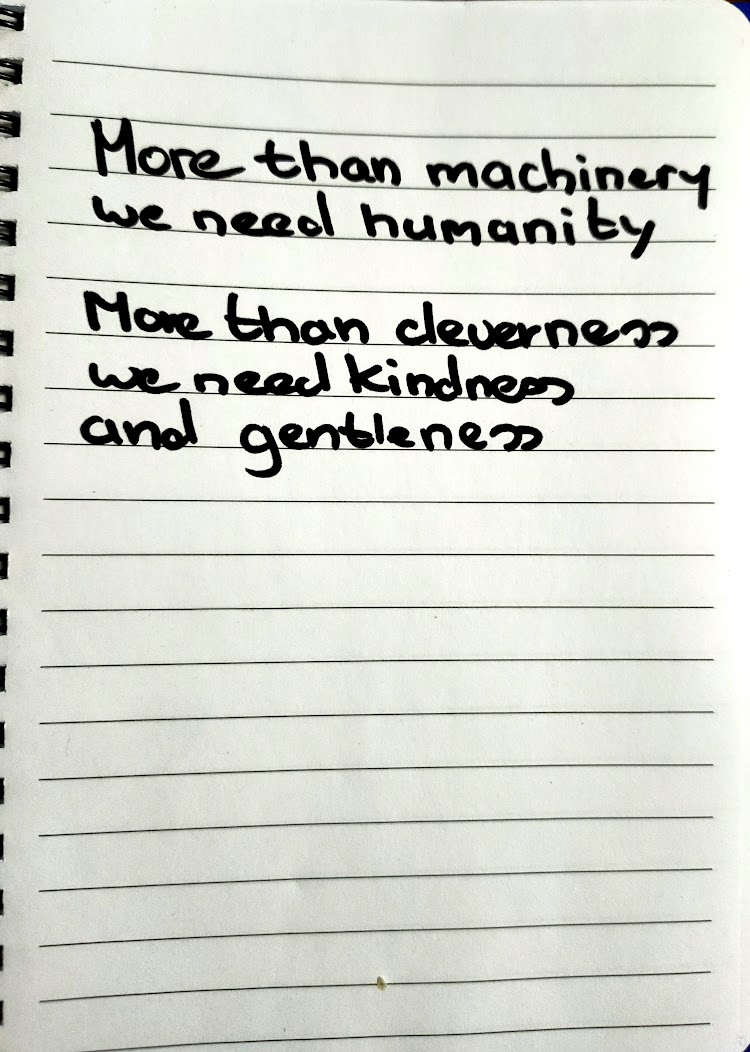 More than machinery
we need humanity
More than cleverness
we need kindness
and gentleness